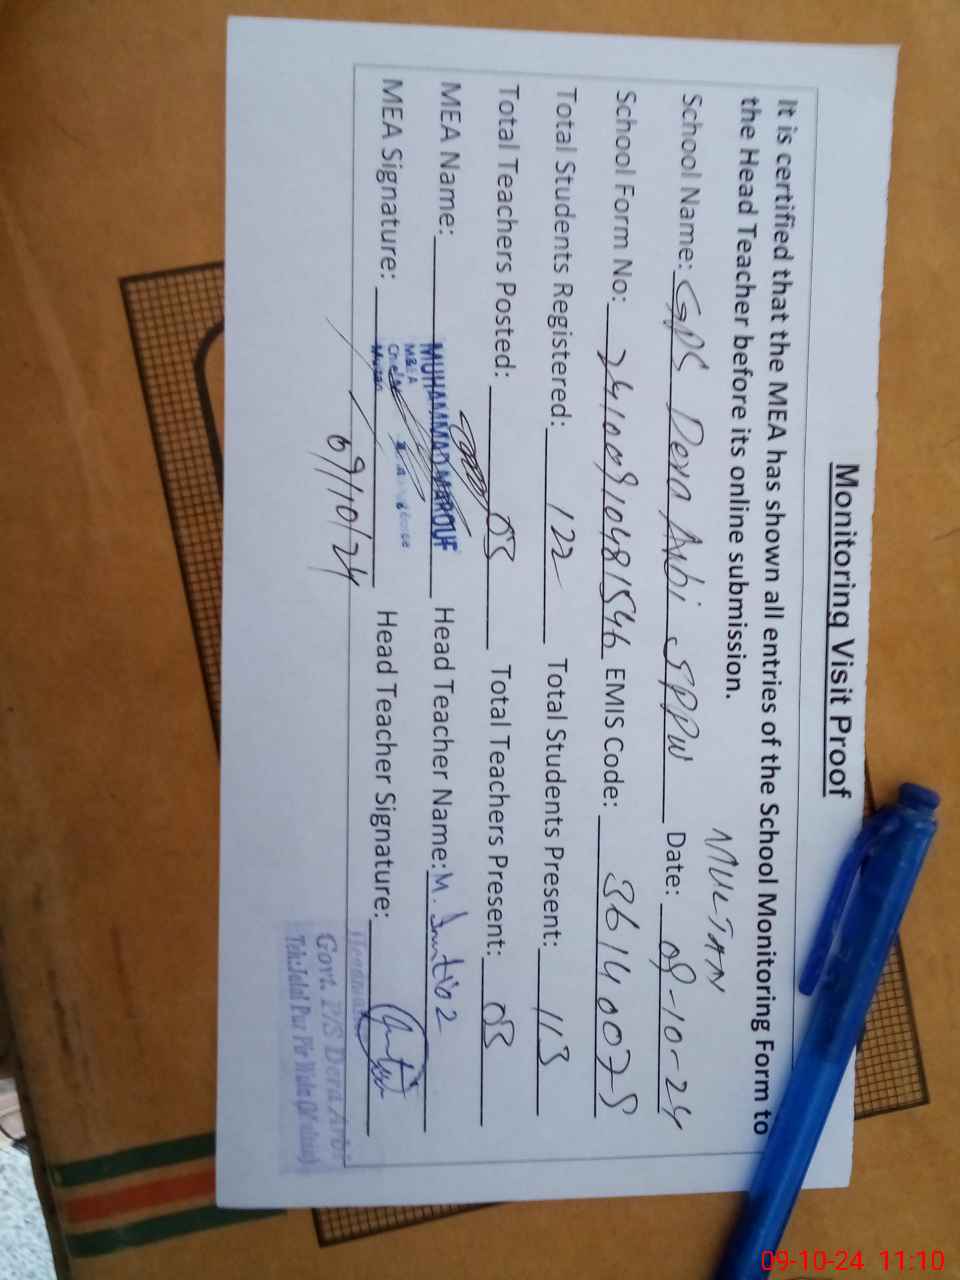 Monitoring Visit Proof
It is certified that the MEA has shown all entries of the School Monitoring Form to
the Head Teacher before its online submission.
MULTAN
School Name: GPS Dera Arbi JPPW Date: 09-10-24
School Form No: EMIS Code:
Total Students Registered: 122 Total Students Present: 113
Total Teachers Posted: 03 Total Teachers Present: 03
MEA Name: MUHAMMAD MAROUF Head Teacher Name: M.
M&EA
MEA Signature: Head Teacher Signature:
09/10/24
Govt. P/S Dera Arbi
Teh: Jalal Pur Pir Wala
09-10-24 11:10